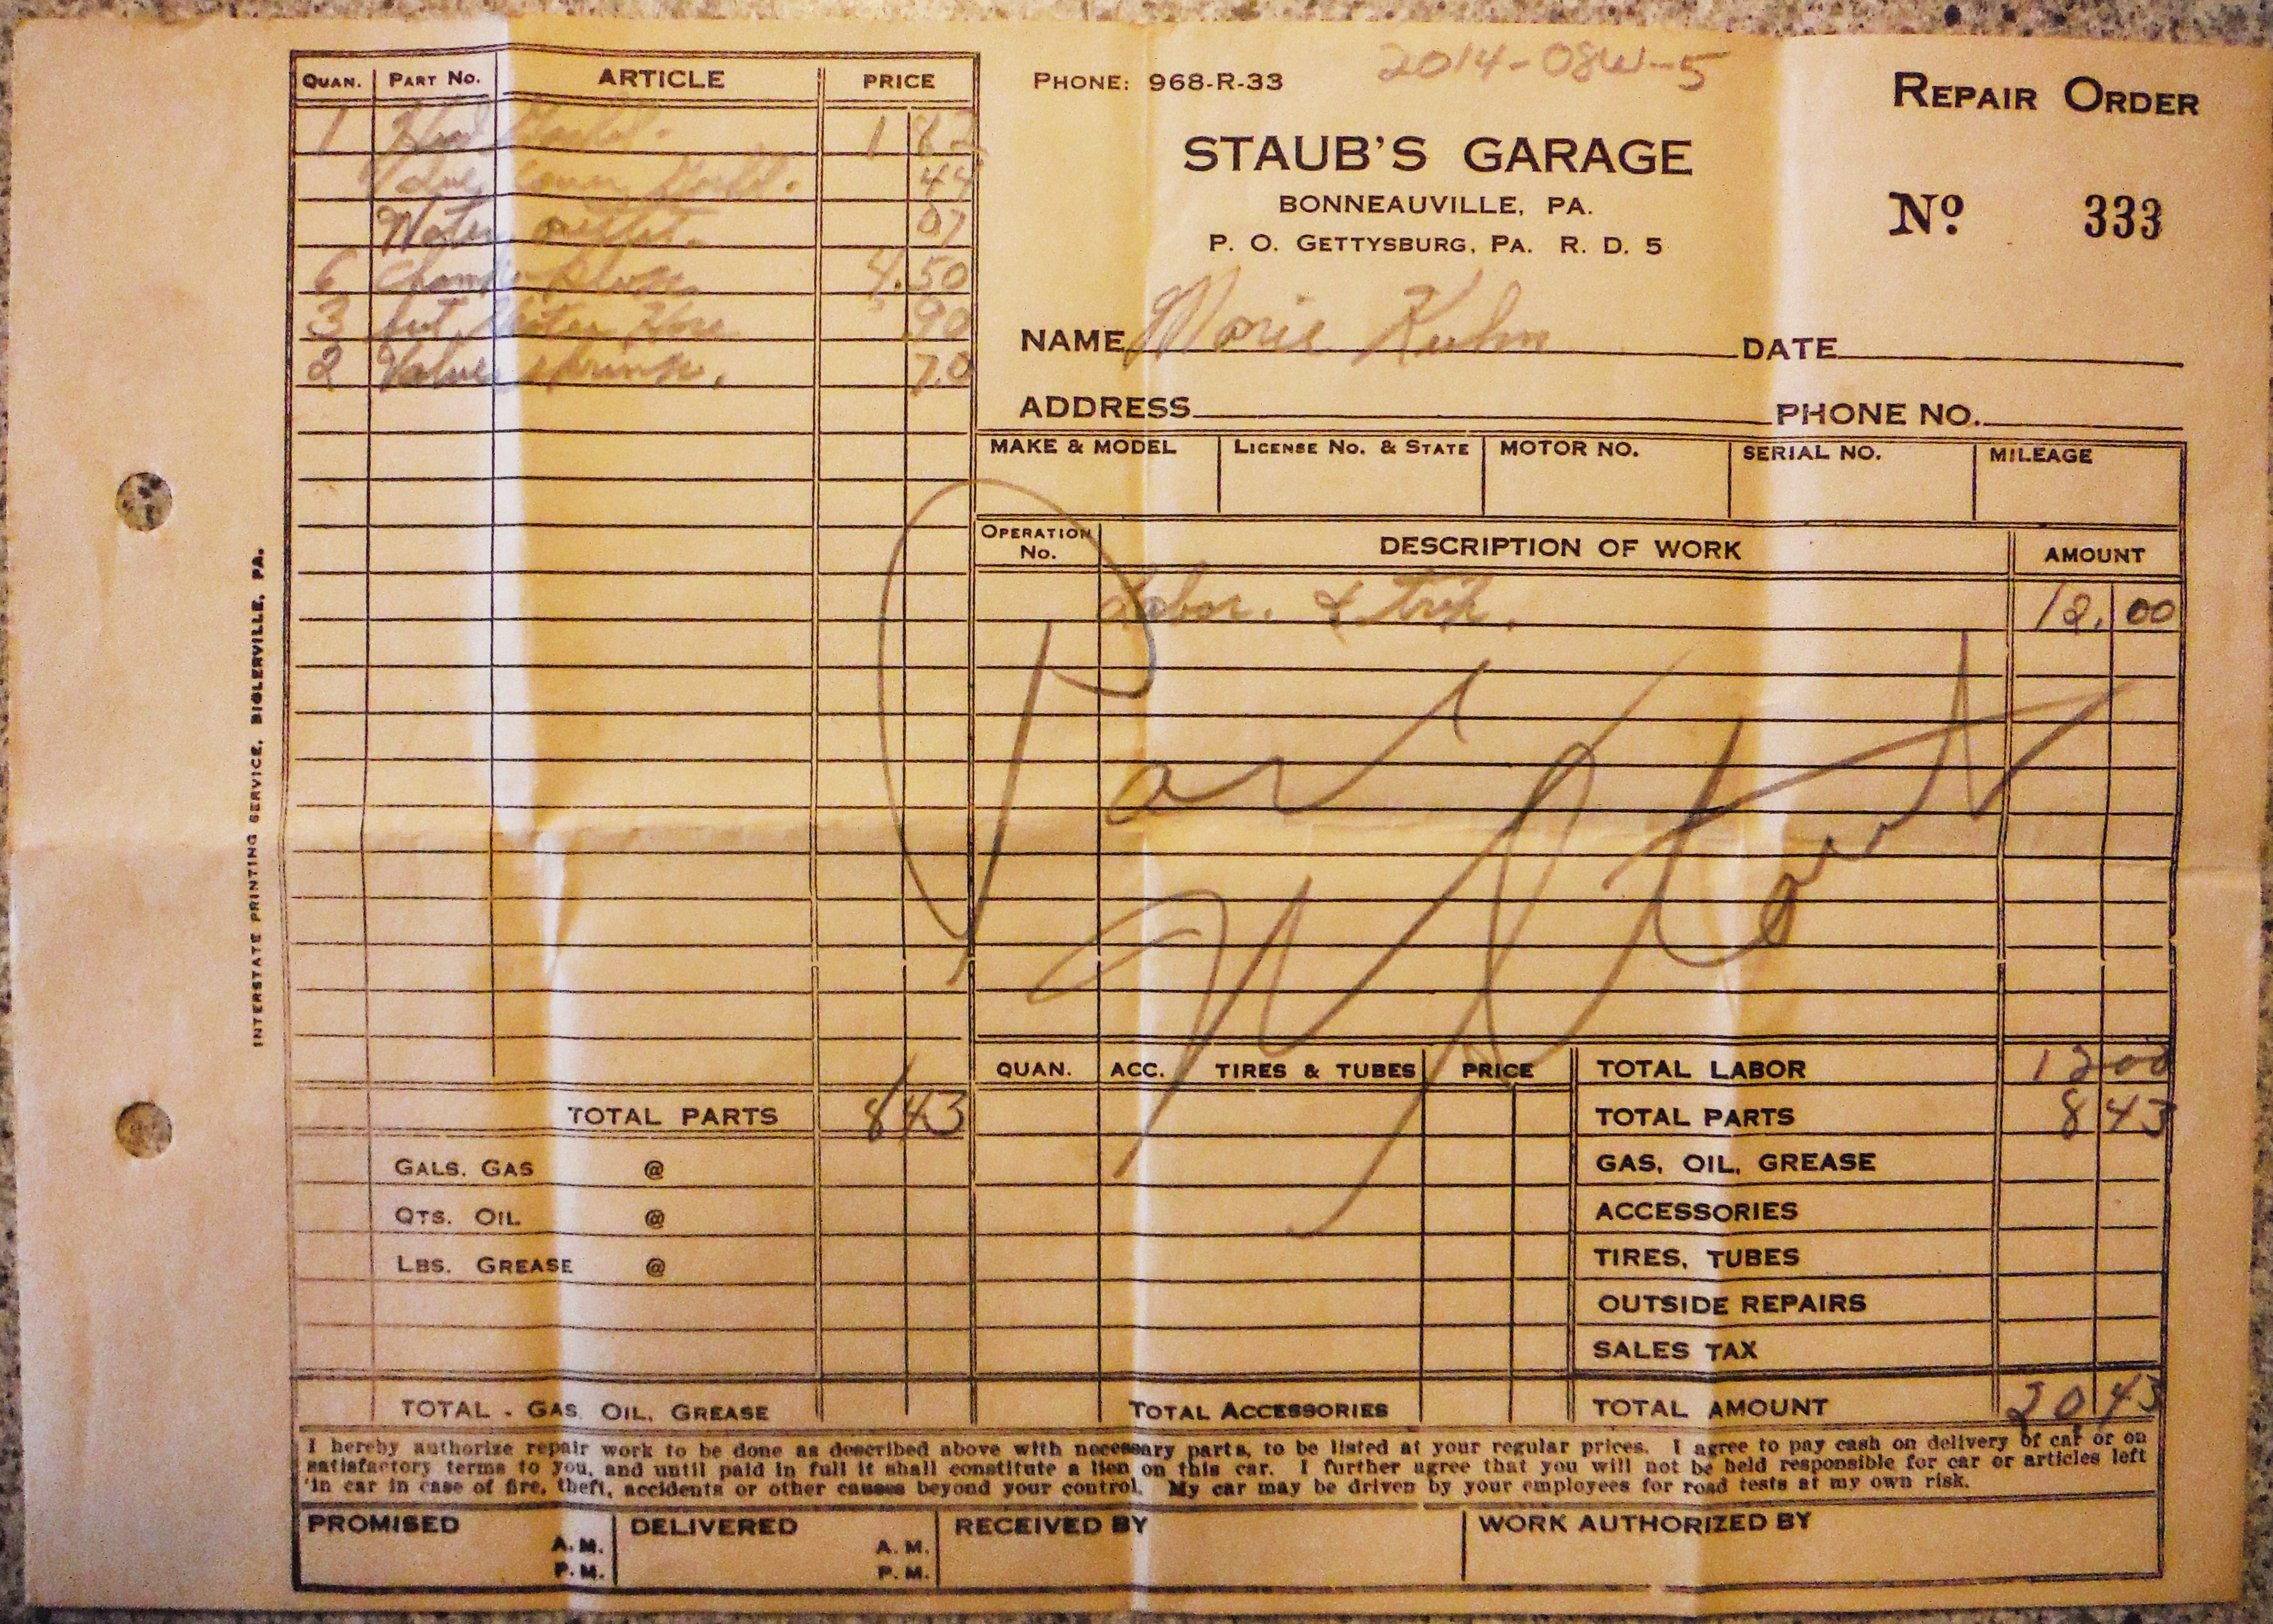 2014-08W-5
PHONE: 968-R-33
REPAIR ORDER
STAUB'S GARAGE
BONNEAUVILLE, PA.
P. O. GETTYSBURG, PA. R. D. 5
Nº 333
NAME Marie Kuhn DATE
ADDRESS PHONE NO.
MAKE & MODEL LICENSE NO. & STATE MOTOR NO. SERIAL NO. MILEAGE
QUAN. PART NO. ARTICLE PRICE
1 Head 1 82
Valve Cover 44
Water outlet. 07
6 Champ. Plugs 4.50
3 fut. Water Hose .90
2 Valve springs. 70
OPERATION NO. DESCRIPTION OF WORK AMOUNT
Labor. & trip. 12.00
Paid
TOTAL PARTS 8 43
GALS. GAS @
QTS. OIL @
LBS. GREASE @
TOTAL - GAS OIL, GREASE
QUAN. ACC. TIRES & TUBES PRICE
TOTAL ACCESSORIES
TOTAL LABOR 12 00
TOTAL PARTS 8 43
GAS, OIL, GREASE
ACCESSORIES
TIRES, TUBES
OUTSIDE REPAIRS
SALES TAX
TOTAL AMOUNT 20.43
I hereby authorize repair work to be done as described above with necessary parts, to be listed at your regular prices. I agree to pay cash on delivery of car or on
satisfactory terms to you, and until paid in full it shall constitute a lien on this car. I further agree that you will not be held responsible for car or articles left
in car in case of fire, theft, accidents or other causes beyond your control. My car may be driven by your employees for road tests at my own risk.
PROMISED A.M. P.M. DELIVERED A.M. P.M. RECEIVED BY WORK AUTHORIZED BY
INTERSTATE PRINTING SERVICE, BIGLERVILLE, PA.